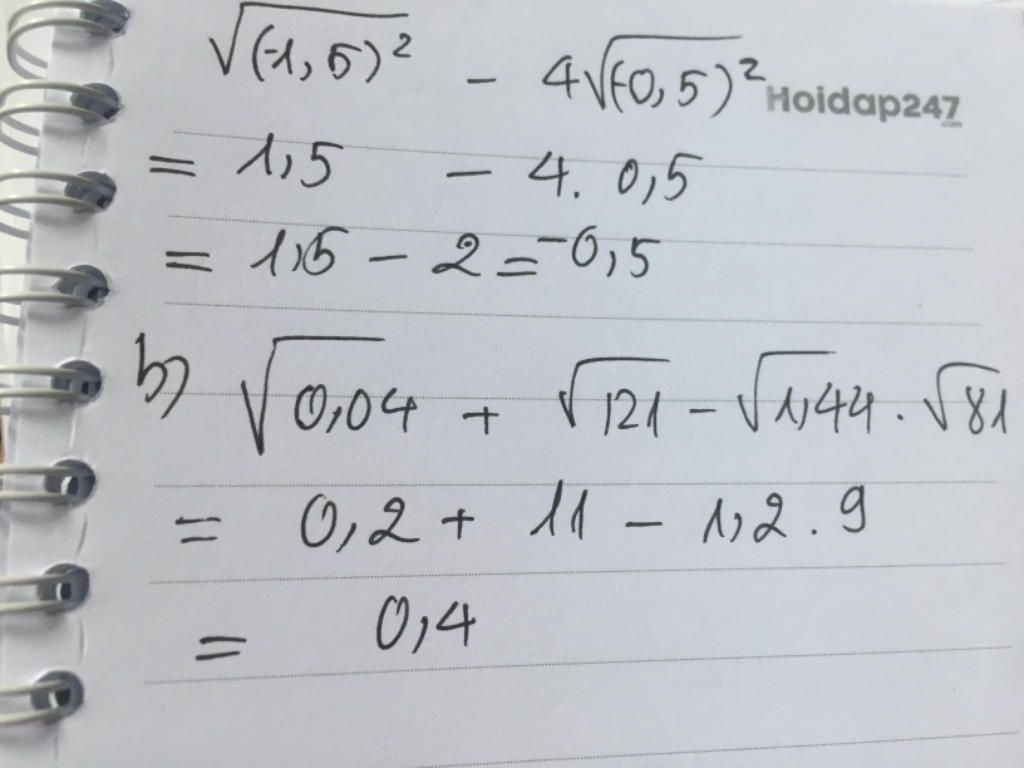 √(-1,5)² - 4√(-0,5)²
Hoidap247
.com
= 1,5 - 4. 0,5
= 1,5 - 2 = -0,5
b) √0,04 + √121 - √1,44 . √81
= 0,2 + 11 - 1,2 . 9
= 0,4